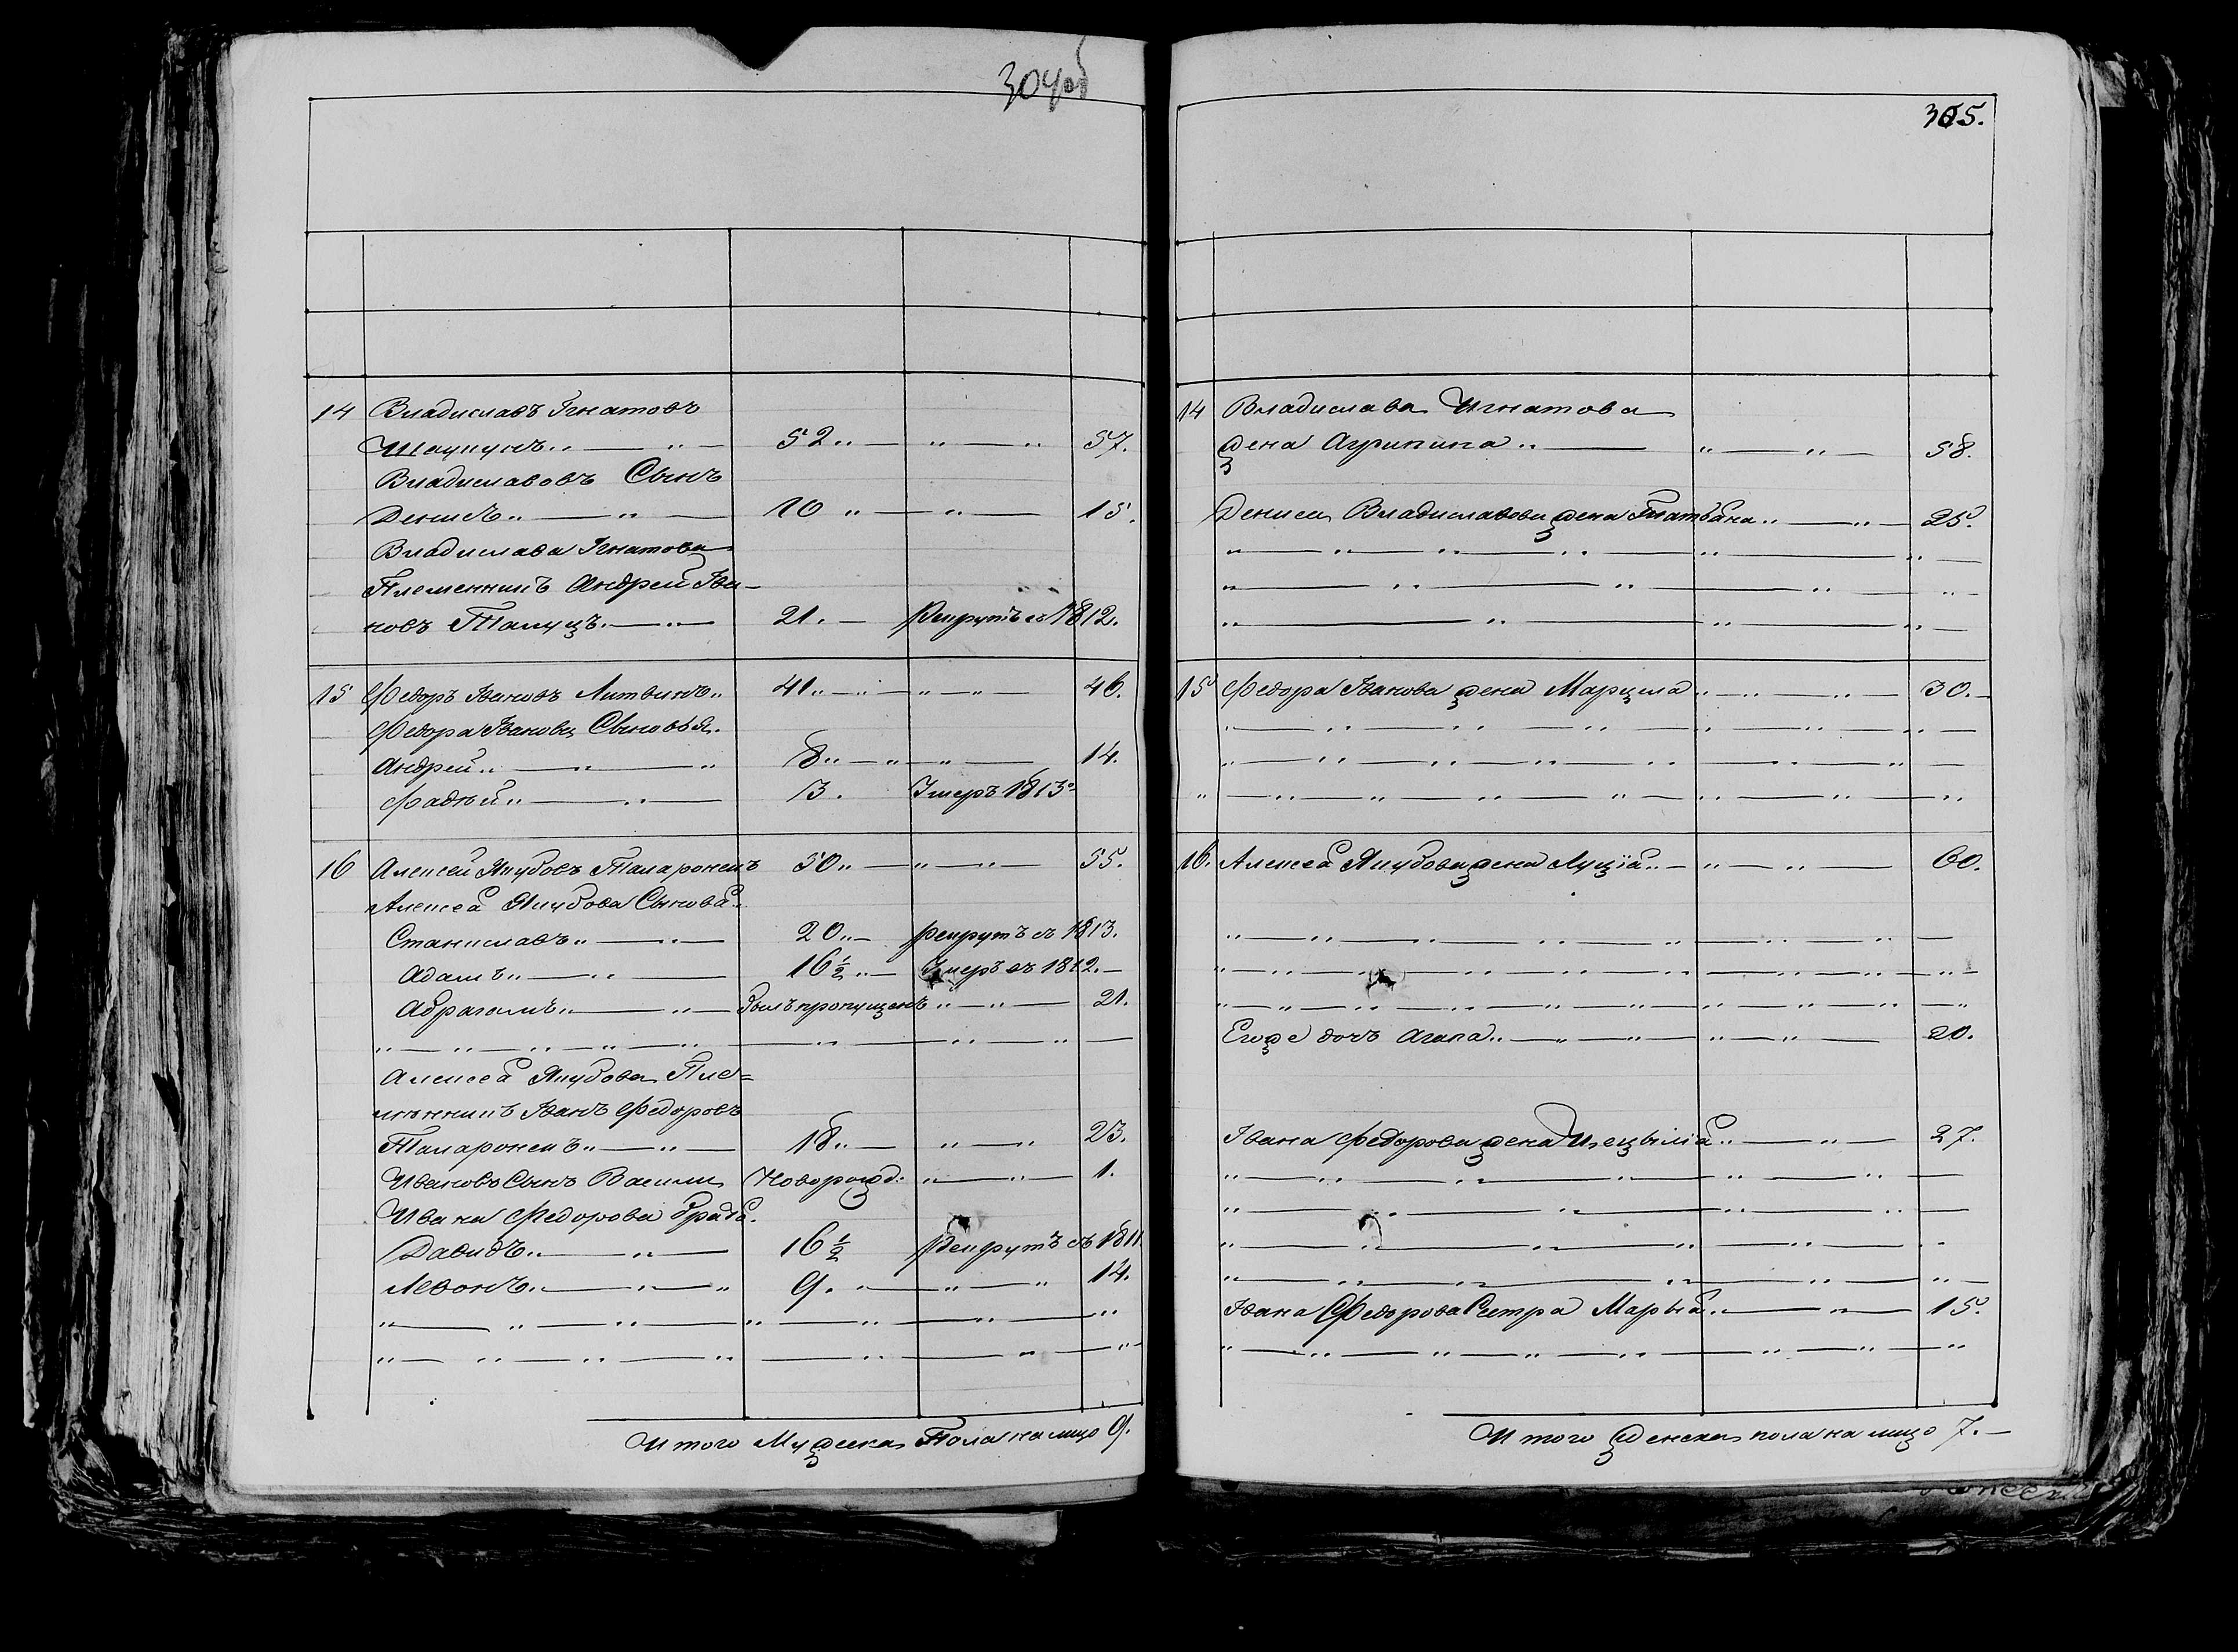 304об
14 Владиславъ Игнатовъ
Шаупунъ 52 57.
Владиславовъ Сынъ
Денисъ 10 15.
Владислава Игнатова
Племенникъ Андрей Ива-
новъ 21. Рекрутъ въ 1812.
15 Федоръ Ивановъ Литвинъ 41 46.
Федора Иванова Сыновья
Андрей 8 14.
Фадѣй 3. Умеръ 1813
16 Алексей Якубовъ Таларонекъ 50 55.
Алексея Якубова Сыновья
Станиславъ 20 рекрутъ въ 1813.
Адамъ 16 1/2 Умеръ въ 1812.
Абрагамъ Былъ пропущенъ 21.
Алексея Якубова Пле=
мѣнникъ Иванъ Федоровъ
Таларонекъ 18 23.
Ивановъ Сынъ Васили Новорожд: 1.
Ивана Федорова братья.
Давидъ 16 1/2 Рекрутъ въ 1811
Левонъ 9. 14.
Итого Мужеска Пола на лицо 9.
305.
14 Владислава Игнатова
жена Агрипина 58.
Дениса Владиславова жена Татьяна 25.
15 Федора Иванова жена Марцела 30.
16. Алексея Якубова жена Луція 60.
Егоже дочь Агапа 20.
Ивана Федорова жена Цецылія 27.
Ивана Федорова Сестра Марья 15.
Итого женска пола на лицо 7.